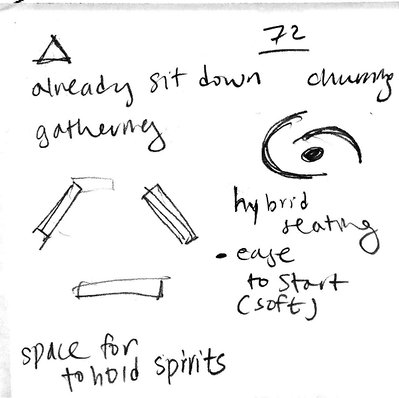 72
already sit down
gathering
hybrid
seating
• ease
to start
(soft)
space for
to hold spirits